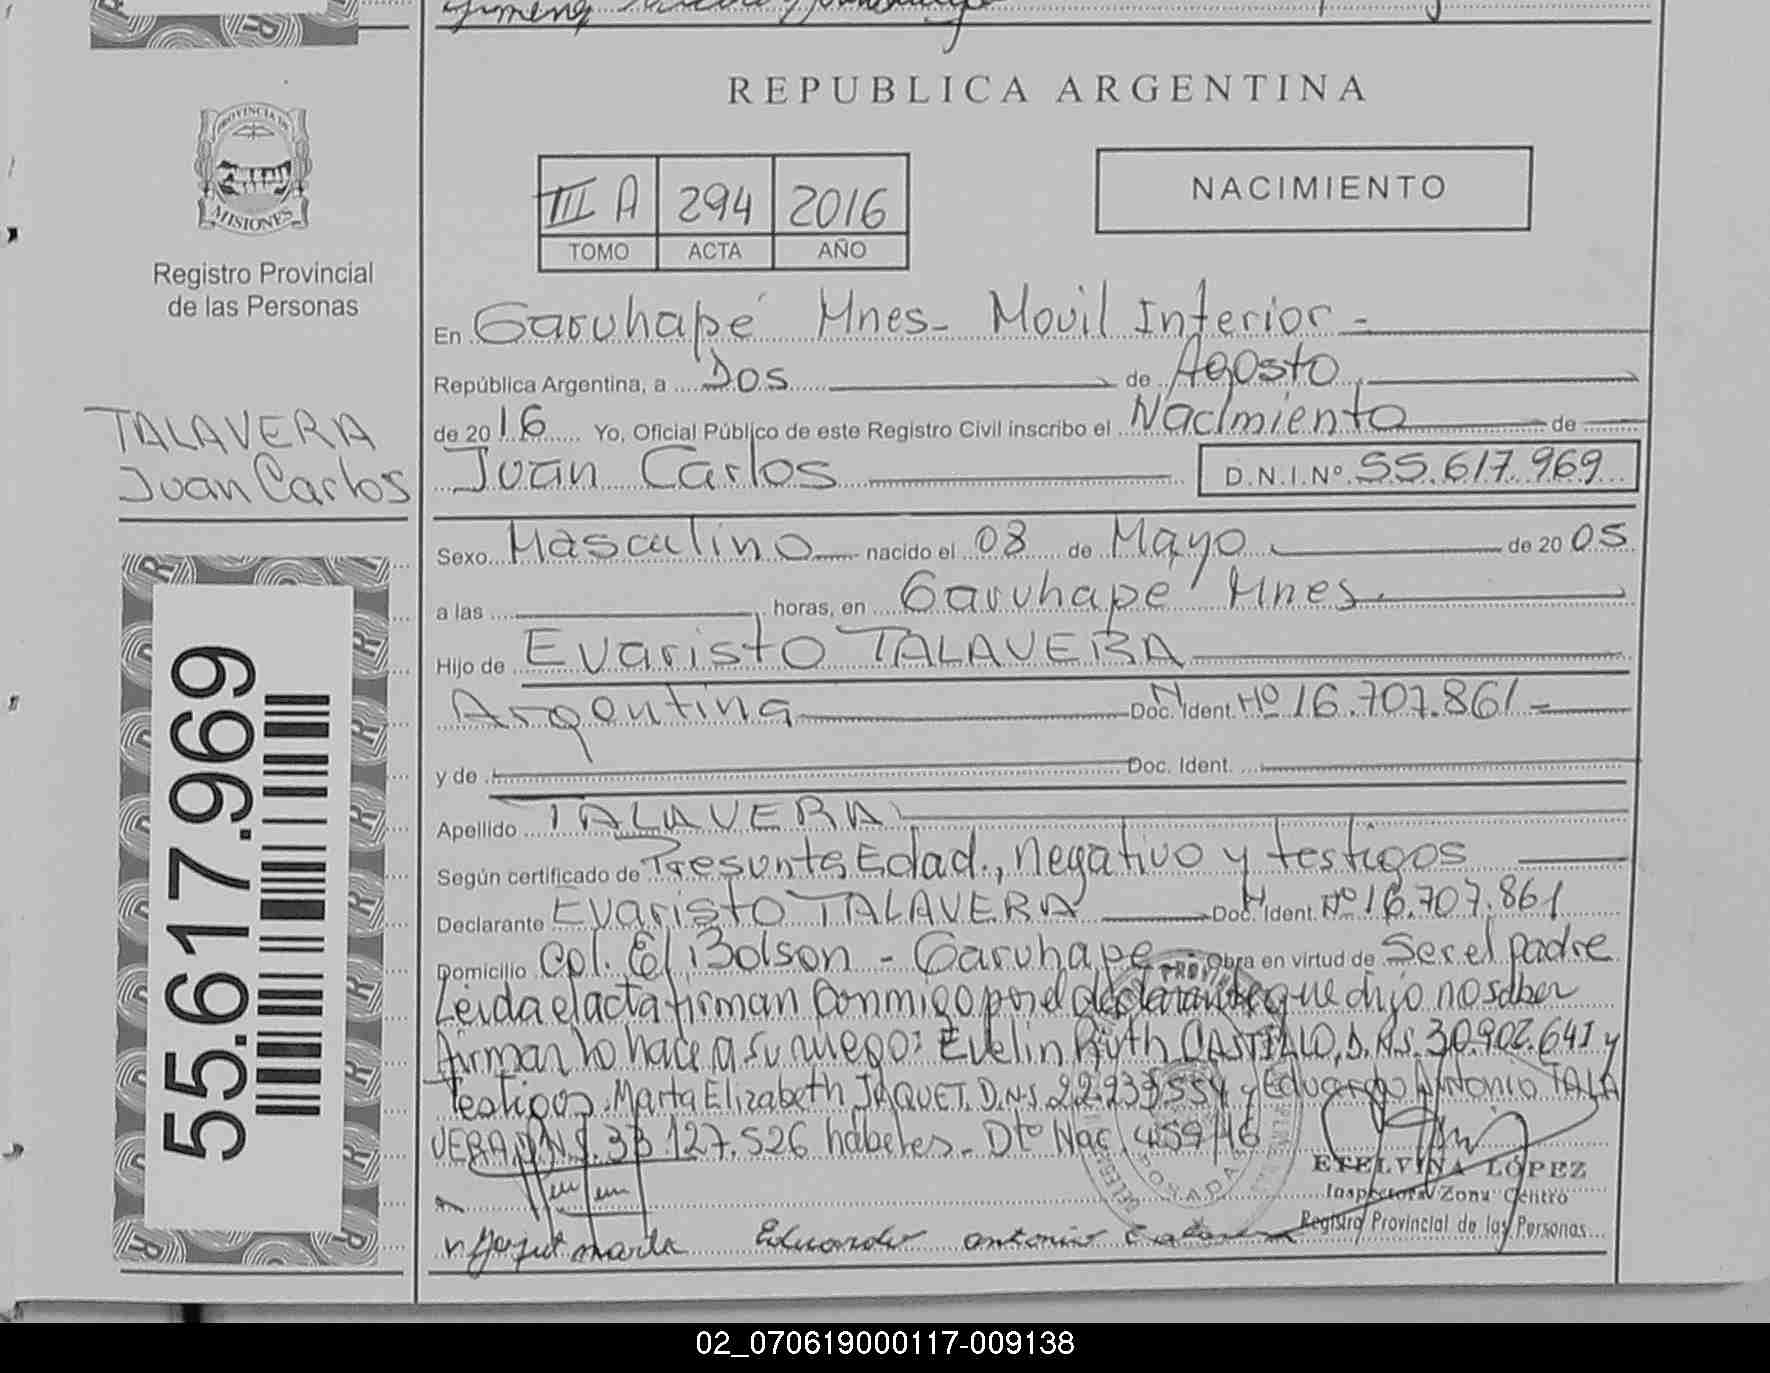 REPUBLICA ARGENTINA
PROVINCIA DE
MISIONES
Registro Provincial
de las Personas
III A 294 2016
TOMO ACTA AÑO
NACIMIENTO
En Garuhapé Mnes- Movil Interior -
República Argentina, a Dos de Agosto
de 2016 Yo, Oficial Público de este Registro Civil inscribo el Nacimiento de
Juan Carlos D.N.I.Nº 55.617.969
TALAVERA
Juan Carlos
Sexo Masculino nacido el 08 de Mayo de 2005
a las horas, en Garuhape Mnes.
Hijo de Evaristo TALAVERA
Argentina Doc. Ident. Nº 16.707.861-
y de Doc. Ident.
Apellido TALAVERA
Según certificado de Presunta Edad, negativo y testigos
Declarante Evaristo TALAVERA Doc. Ident. Nº 16.707.861
Domicilio Col. El Bolson - Garuhape Obra en virtud de Ser el padre
Leida el acta firman conmigo por el declarante que dijo no saber
firmar lo hace a su ruego: Evelin Ruth CASTILLO, D.N.I. 30.902.641 y
testigos. Marta Elizabeth JAQUET. D.N.I. 22.933.554 y Eduardo Antonio TALA
VERA D.N.I. 33.127.526 habeles. Dto Nac. 459/16
ETELVINA LÓPEZ
Inspectora Zona Centro
Registro Provincial de las Personas
marta Eduardo antonio
55.617.969
02_070619000117-009138